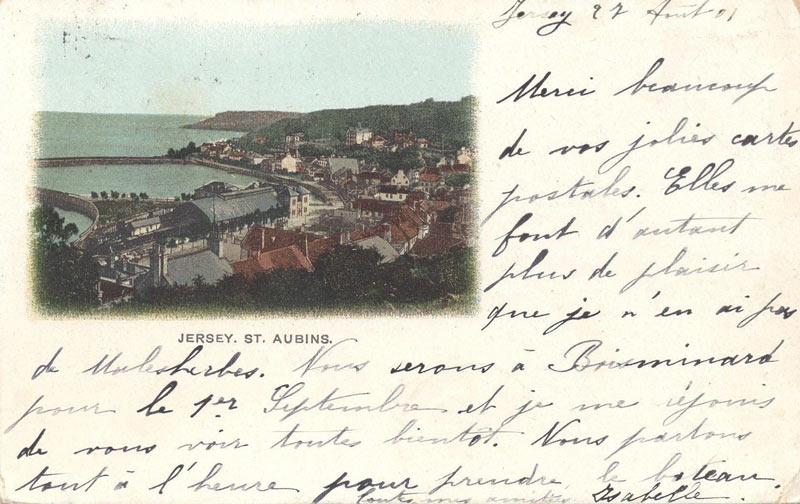 Jersey 27 Août 01
Merci beaucoup
de vos jolies cartes
postales. Elles me
font d'autant
plus de plaisir
que je n'en ai pas
JERSEY. ST. AUBINS.
de Malesherbes. Nous serons à Boisminard
pour le 1er Septembre et je me réjouis
de vous voir toutes bientôt. Nous partons
tout à l'heure pour prendre le bateau.
toutes mes amitiés Isabelle.